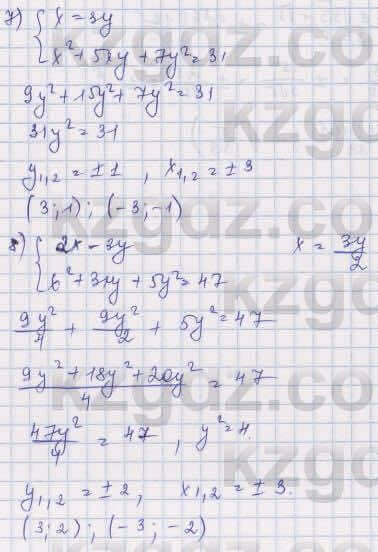 7) { x = 3y
x² + 5xy + 7y² = 31
9y² + 15y² + 7y² = 31
31y² = 31
y₁,₂ = ±1 , x₁,₂ = ±3
(3; 1) ; (-3; -1)
8) { 2x - 3y x = 3y/2
6² + 3xy + 5y² = 47
9y²/4 + 9y²/2 + 5y² = 47
(9y² + 18y² + 20y²)/4 = 47
47y²/4 = 47 , y² = 4.
y₁,₂ = ±2 , x₁,₂ = ±3.
(3; 2) ; (-3; -2)
kzgdz.com